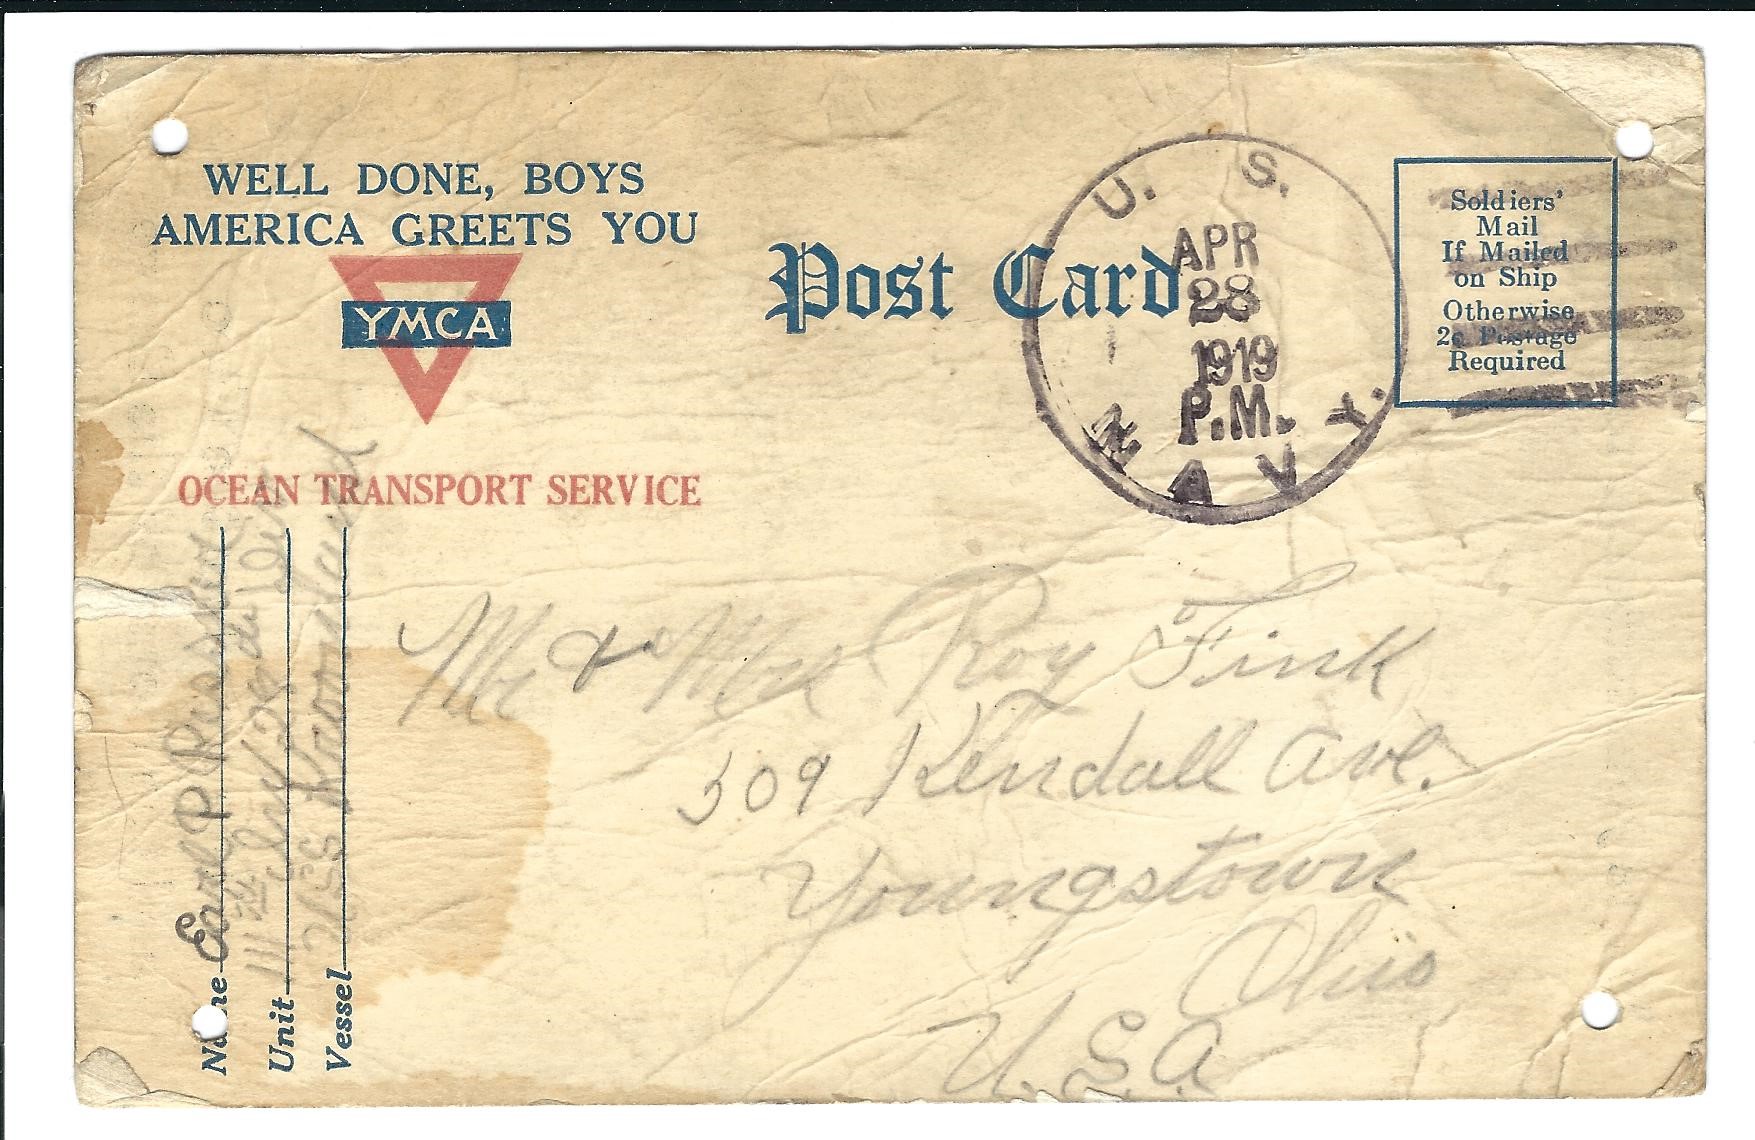 WELL DONE, BOYS
AMERICA GREETS YOU
YMCA
OCEAN TRANSPORT SERVICE
Post Card
U. S. NAVY.
APR
28
1919
P.M.
Soldiers'
Mail
If Mailed
on Ship
Otherwise
2c Postage
Required
Name Earl P
Unit 111th Inf 28 Div
Vessel USS Kroonland
Mr & Mrs Roy Fink
509 Kendall Ave.
Youngstown
Ohio
U.S.A